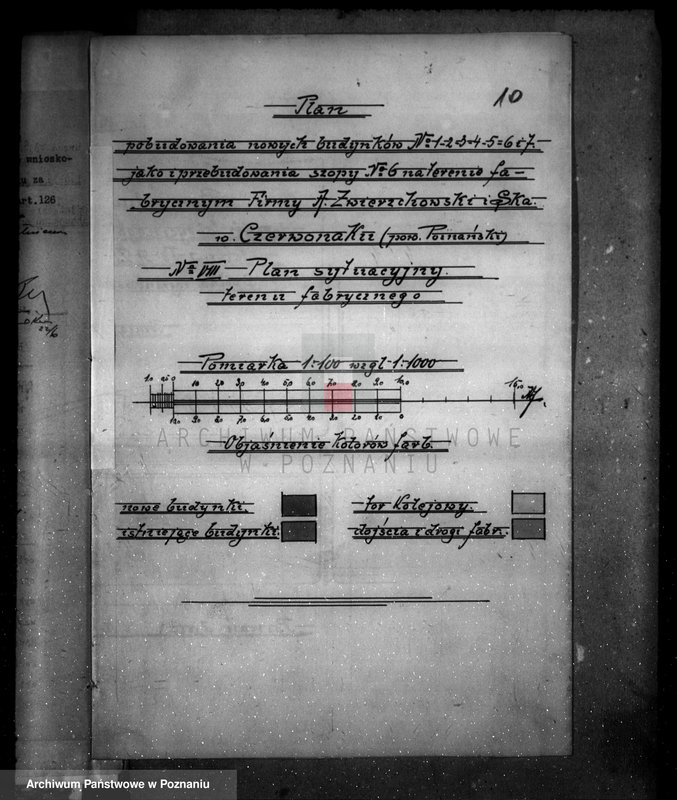 10
Plan
pobudowania nowych budynków №1-2-3-4-5-6 i 7.
jako i przebudowania szopy №6 na terenie fa-
brycznym Firmy A. Zwierzchowski i Ska.
w. Czerwonaku (pow. Poznański)
№ VIII Plan sytuacyjny.
terenu fabrycznego
Pomiarka 1:100 wzgl. 1:1000
10 5 0 10 20 30 40 50 60 70 80 90 100 150 M.
100 90 80 70 60 50 40 30 20 10 0
ARCHIWUM PAŃSTWOWE
W POZNANIU
Objaśnienie kolorów farb.
nowe budynki. tor kolejowy.
istniejące budynki. dojścia i drogi fabr.
wniosko-
za
art.126
22/6
Archiwum Państwowe w Poznaniu